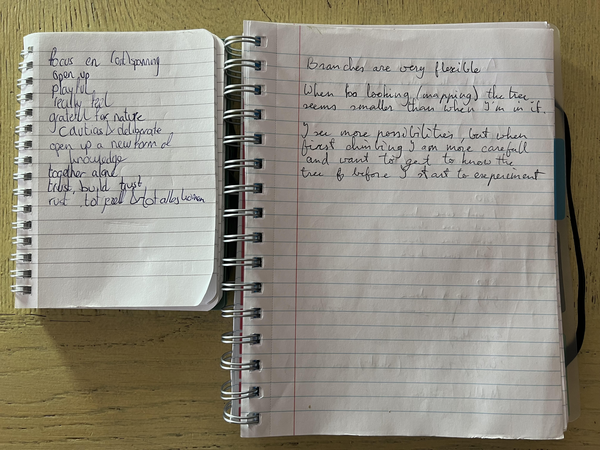 focus en (ont)spanning
open up
playful
really tall
grateful for nature
cautias & deliberate
open up a new form of
knowledge
together alone
trust, build trust
rust, tot
Branches are very flexible
When too looking (mapping) the tree
seems smaller than when I'm in it.
I see more possibilities, but when
first climbing I am more carefull
and want to get to know the
tree before I start to experiment